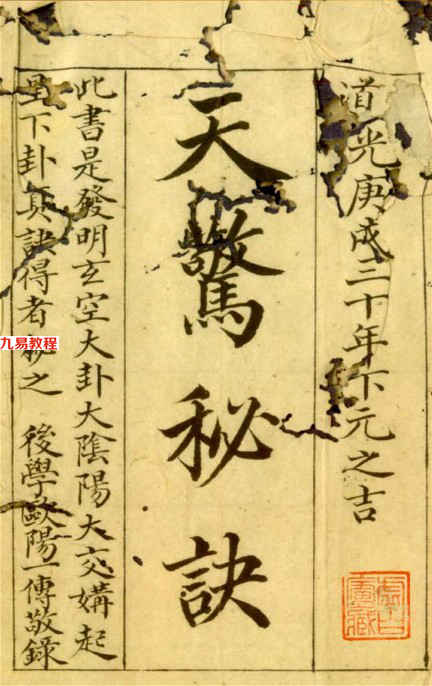 道光庚戌三十年下元之吉
天驚秘訣
此書是發明玄空大卦大陰陽大交媾起
星下卦真訣得者秘之 後學歐陽一傳敬錄
虛白廬藏
九易教程